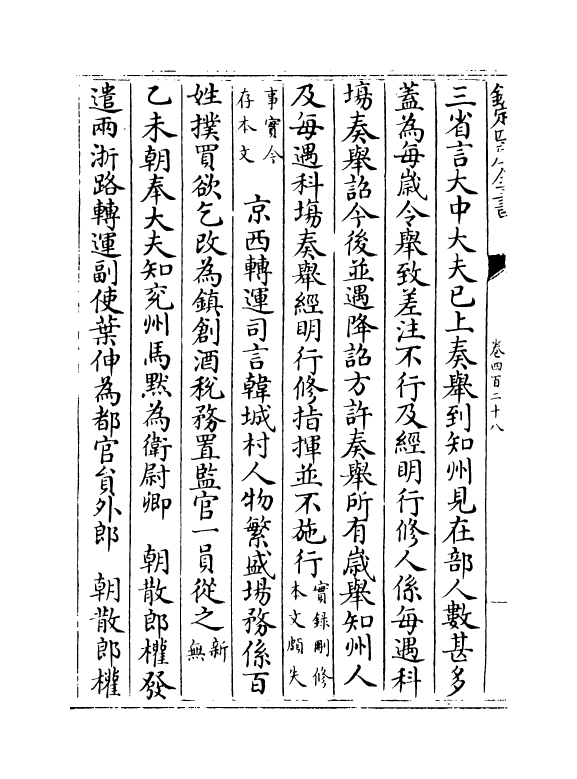 欽定四庫全書
卷四百二十八
三省言大中大夫已上奏舉到知州見在部人數甚多
蓋為每歲令舉致差注不行及經明行修人係每遇科
塲奏舉詔今後並遇降詔方許奏舉所有歲舉知州人
及每遇科塲奏舉經明行修指揮並不施行實錄刪修本文頗失
事實今存本文 京西轉運司言韓城村人物繁盛場務係百
姓撲買欲乞改為鎮創酒稅務置監官一員從之新無
乙未朝奉大夫知兖州馬默為衛尉卿 朝散郎權發
遣兩浙路轉運副使葉伸為都官員外郎 朝散郎權